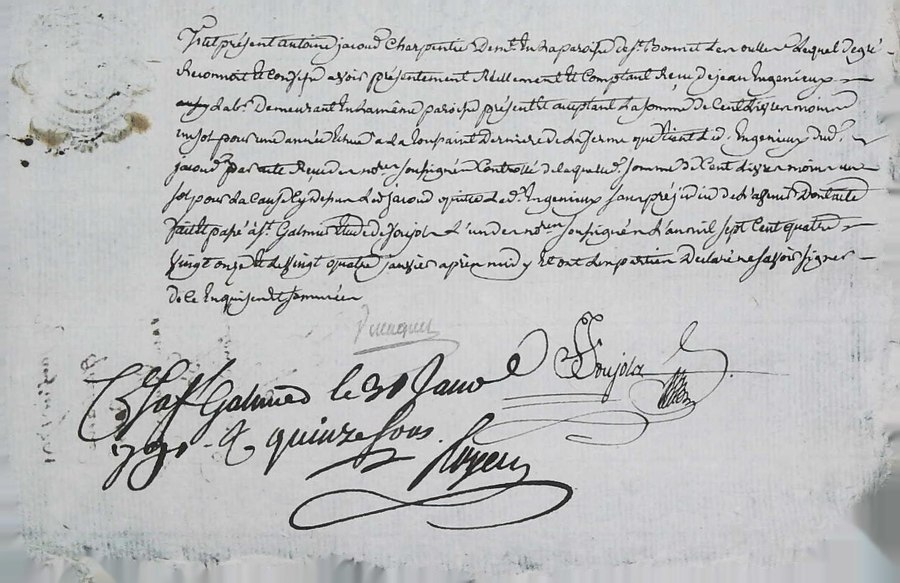 fut présent antoine jacoud Charpentier demt. En La paroisse de st. Bonnet Les oulles Lequel de gré
Reconnoit Et Confesse avoir présentement Réellement Et Comptant Reçu de jean Ingenieux
Labr. Demeurant En La même paroisse présent Et acceptant La somme de Cent dix neuf moins
un sol pour une année Echue a La toussaint Derniere de La ferme que tient Led. Ingenieux dud.
jacoud par acte Reçu de nore. soussigné Controllé de laquelle. somme de Cent dix neuf moins un
sol pour La Cause Cy dessus Led. jacoud quitte Led. Ingenieux sans préjudice de L'avenir Dont acte
fait Et passé à st. Galmier Etude de Soujola L'un des nores. soussignés L'an mil sept Cent quatre
vingt onze Et Le vingt quatre janvier après midy Et ont Les parties Déclaré ne savoir signer
de ce Enquises Et sommées
Soujola
Cllé a st. Galmier le 30 Janv
1791 R quinze sous
Royer